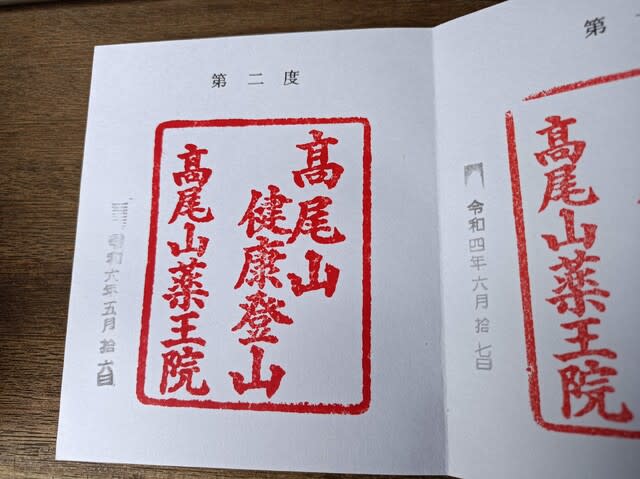 第二度
高尾山
健康登山
高尾山薬王院
令和六年五月拾六日
第
高尾山薬王院
令和四年六月拾七日